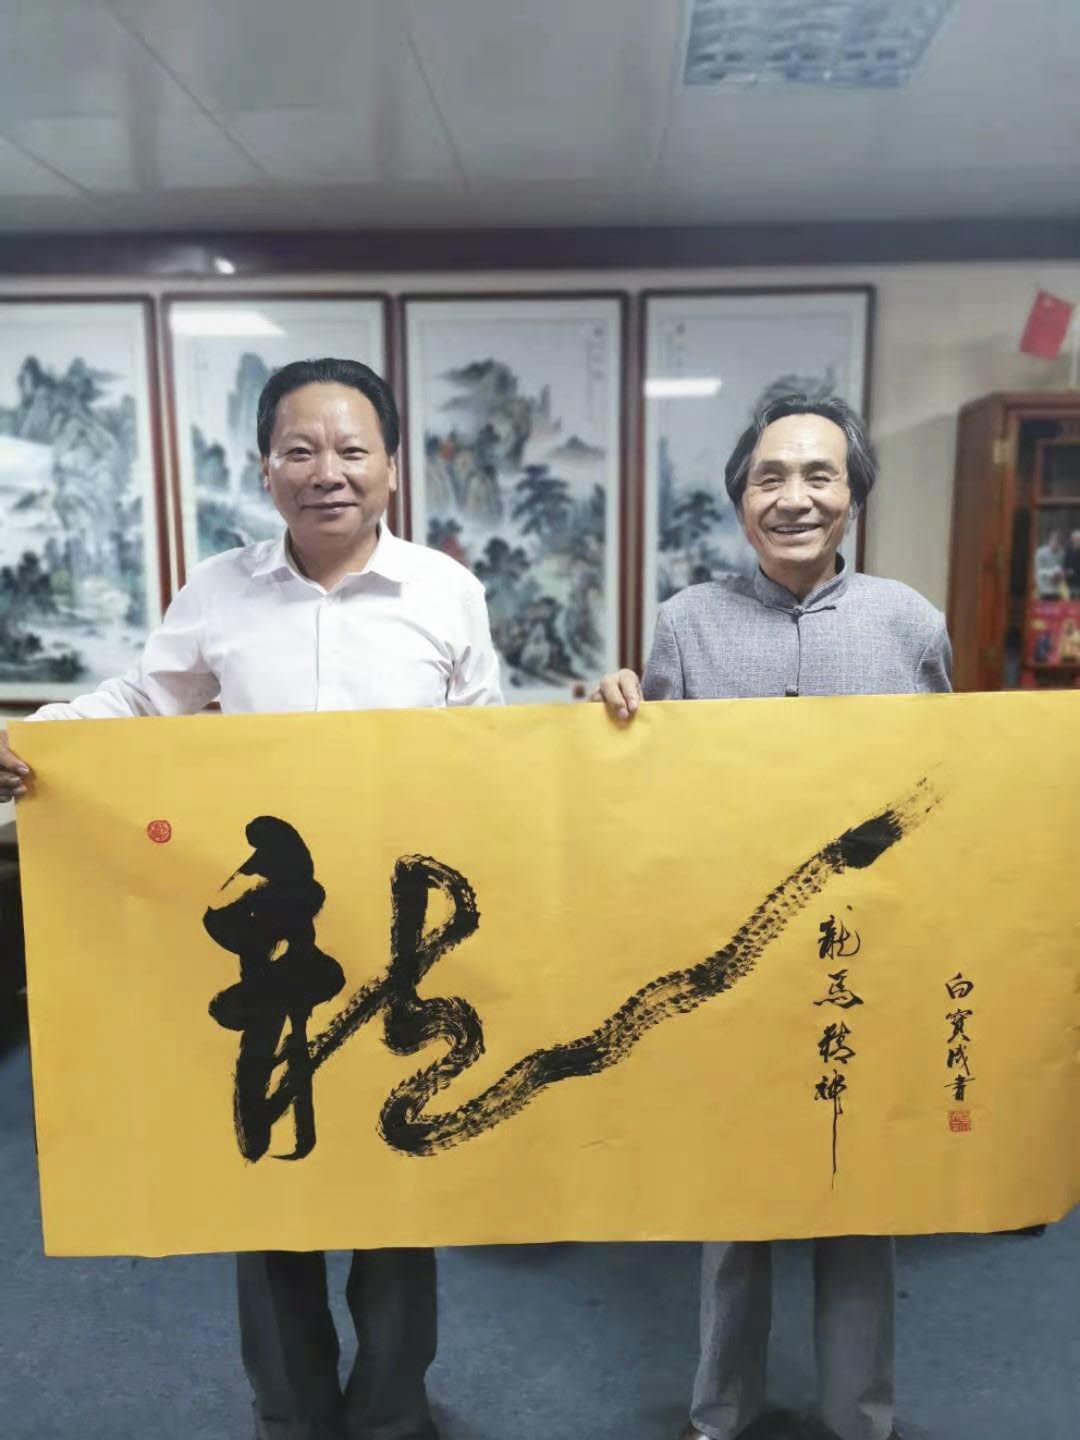 龍
龍馬精神
白寶成書